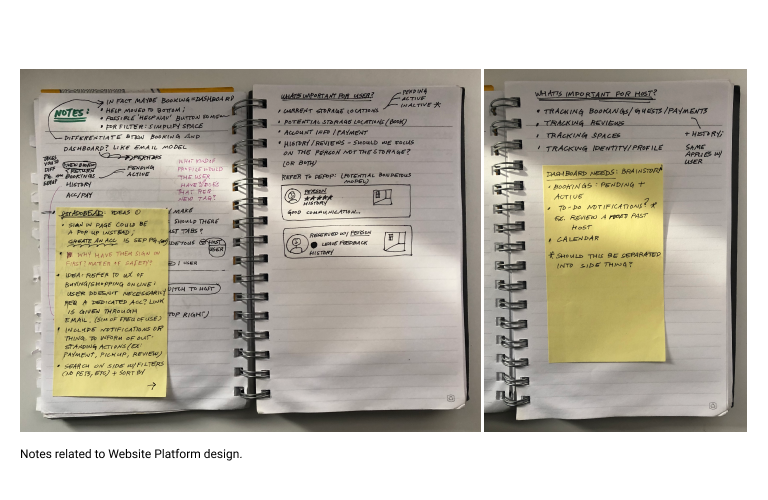 NOTES:
IN FACT MAYBE BOOKING = DASHBOARD
• HELP MOVED TO BOTTOM!
• POSSIBLE 'HELP NAV' BUTTON
• FOR FILTER: SIMPLIFY SPACE
DIFFERENTIATE BTWN BOOKING AND
DASHBOARD? LIKE EMAIL MODEL
PENDING
ACTIVE
BOOKINGS
HISTORY
ACC/PAY
WHAT KIND OF
PROFILE WOULD
THE USER
NEW TAB?
MAKE
SHOULD THERE
TABS?
HOST
USER
USER
SWITCH TO HOST
TOP RIGHT)
IDEAS
• SIGN IN PAGE COULD BE
A POP UP INSTEAD,
CREATE AN ACC. IS SEP PG.
WHY HAVE THEM SIGN IN
FIRST? MATTER OF SAFETY?
• IDEA: REFER TO UX OF
BUYING/SHOPPING ONLINE!
USER DOESN'T NECESSARILY
REQ. A DEDICATED ACC? LINK
IS GIVEN THROUGH
EMAIL.
• INCLUDE NOTIFICATIONS OR
THING TO INFORM OF OUT-
STANDING ACTIONS (EX:
PAYMENT, PICK UP, REVIEW)
• SEARCH ON SIDE W/ FILTERS
(NO PETS, ETC) + SORT BY
WHAT'S IMPORTANT FOR USER?
PENDING
ACTIVE
INACTIVE *
• CURRENT STORAGE LOCATIONS
• POTENTIAL STORAGE LOCATIONS (BOOK)
• ACCOUNT INFO / PAYMENT
• HISTORY / REVIEWS - SHOULD WE FOCUS
ON THE PERSON NOT THE STORAGE?
(OR BOTH)
REFER TO DEPOP: (POTENTIAL
MODEL)
PERSON
★★★★★
HISTORY
GOOD COMMUNICATION...
RESERVED W/ PERSON
LEAVE FEEDBACK
HISTORY
WHAT'S IMPORTANT FOR HOST?
• TRACKING BOOKINGS / GUESTS / PAYMENTS
• TRACKING REVIEWS
• TRACKING SPACES
• TRACKING IDENTITY/PROFILE
+ HISTORY
SAME
APPLIES W/
USER
DASHBOARD NEEDS: BRAINSTORM
• BOOKINGS: PENDING +
ACTIVE
• TO-DO NOTIFICATIONS? *
EX. REVIEW A PAST
HOST
• CALENDAR
* SHOULD THIS BE SEPARATED
INTO SIDE THING?
Notes related to Website Platform design.